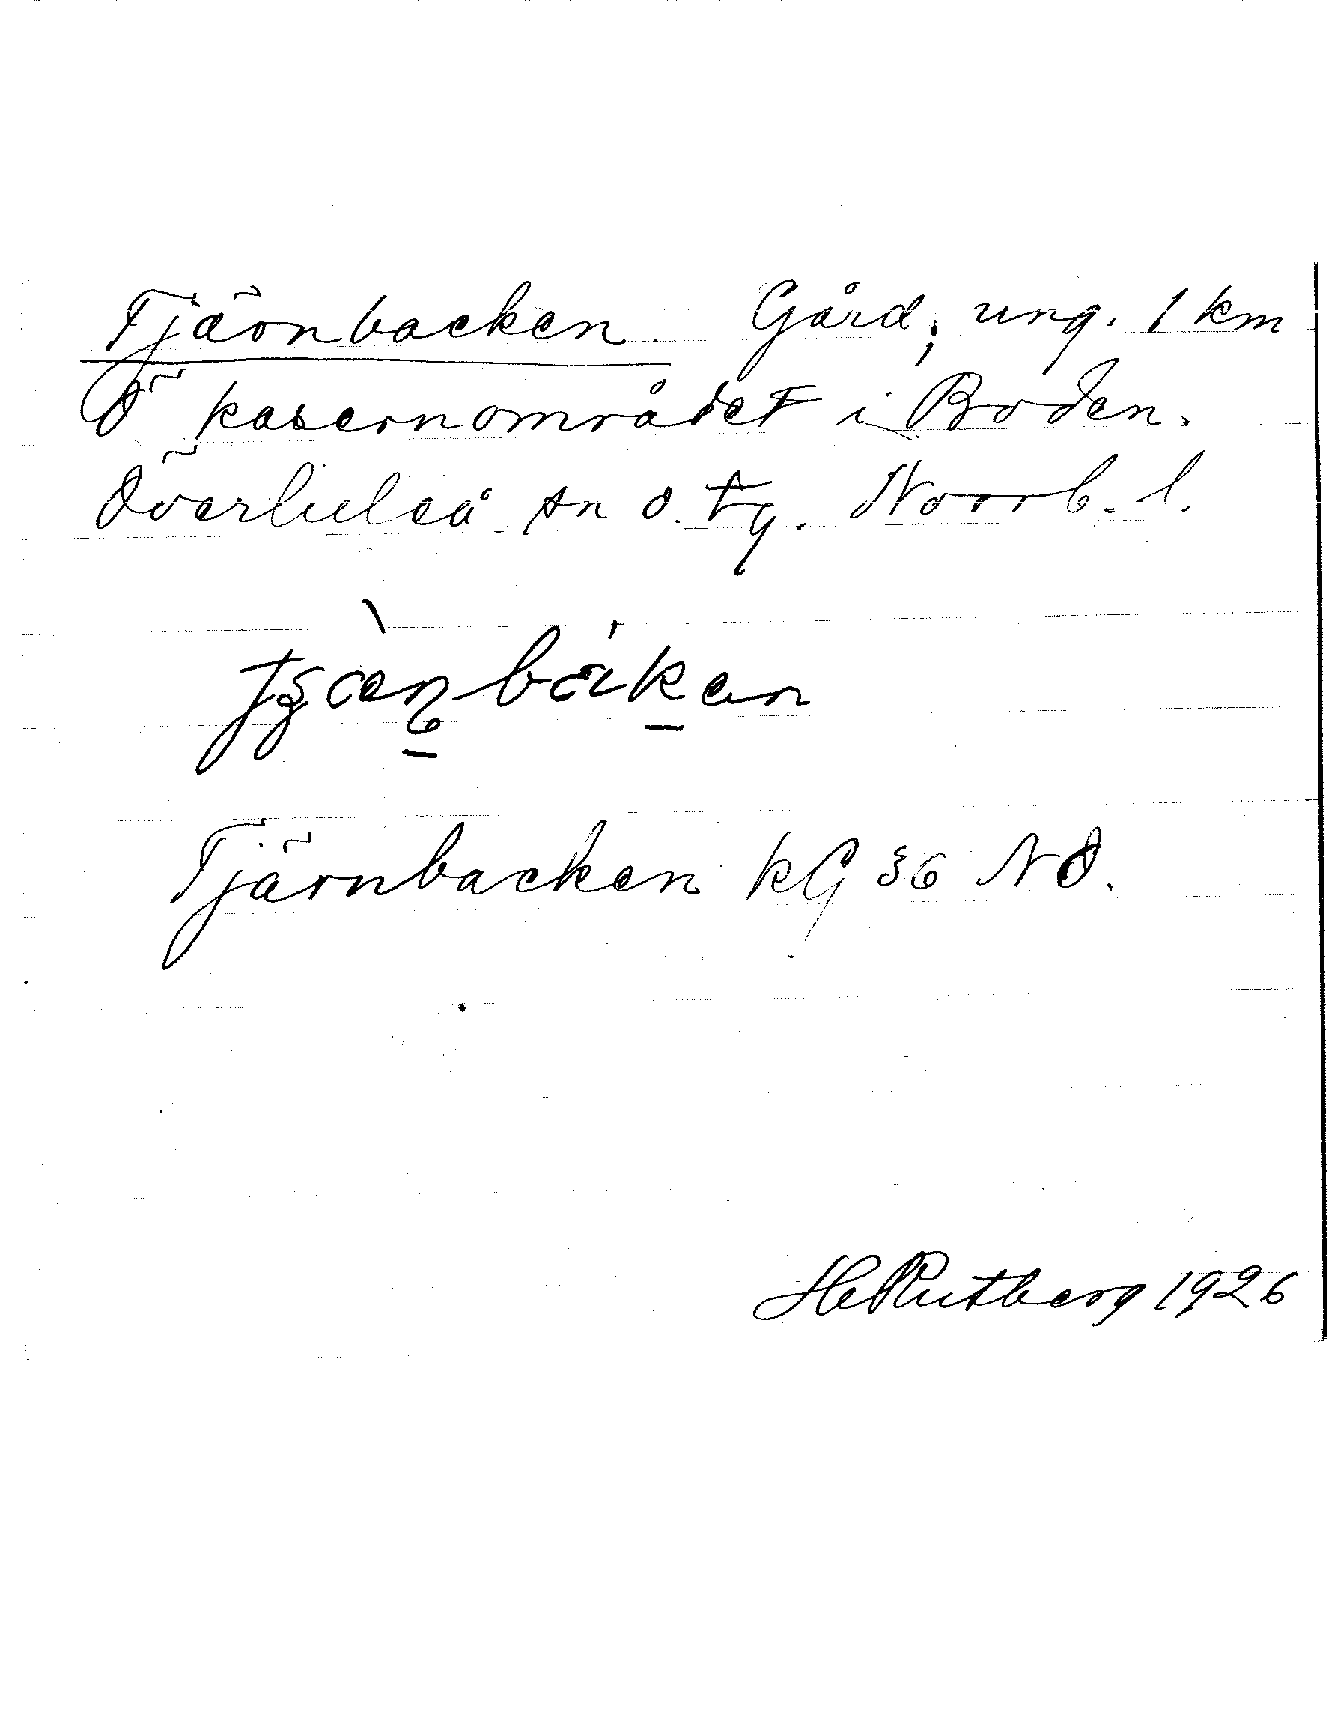 Tjärnbacken Gård, ung. 1 km
Ö kasernområdet i Boden.
Överluleå sn o. tg. Norrb. l.
Tjärnbacken kG 36 NÖ.
H Rutberg 1926